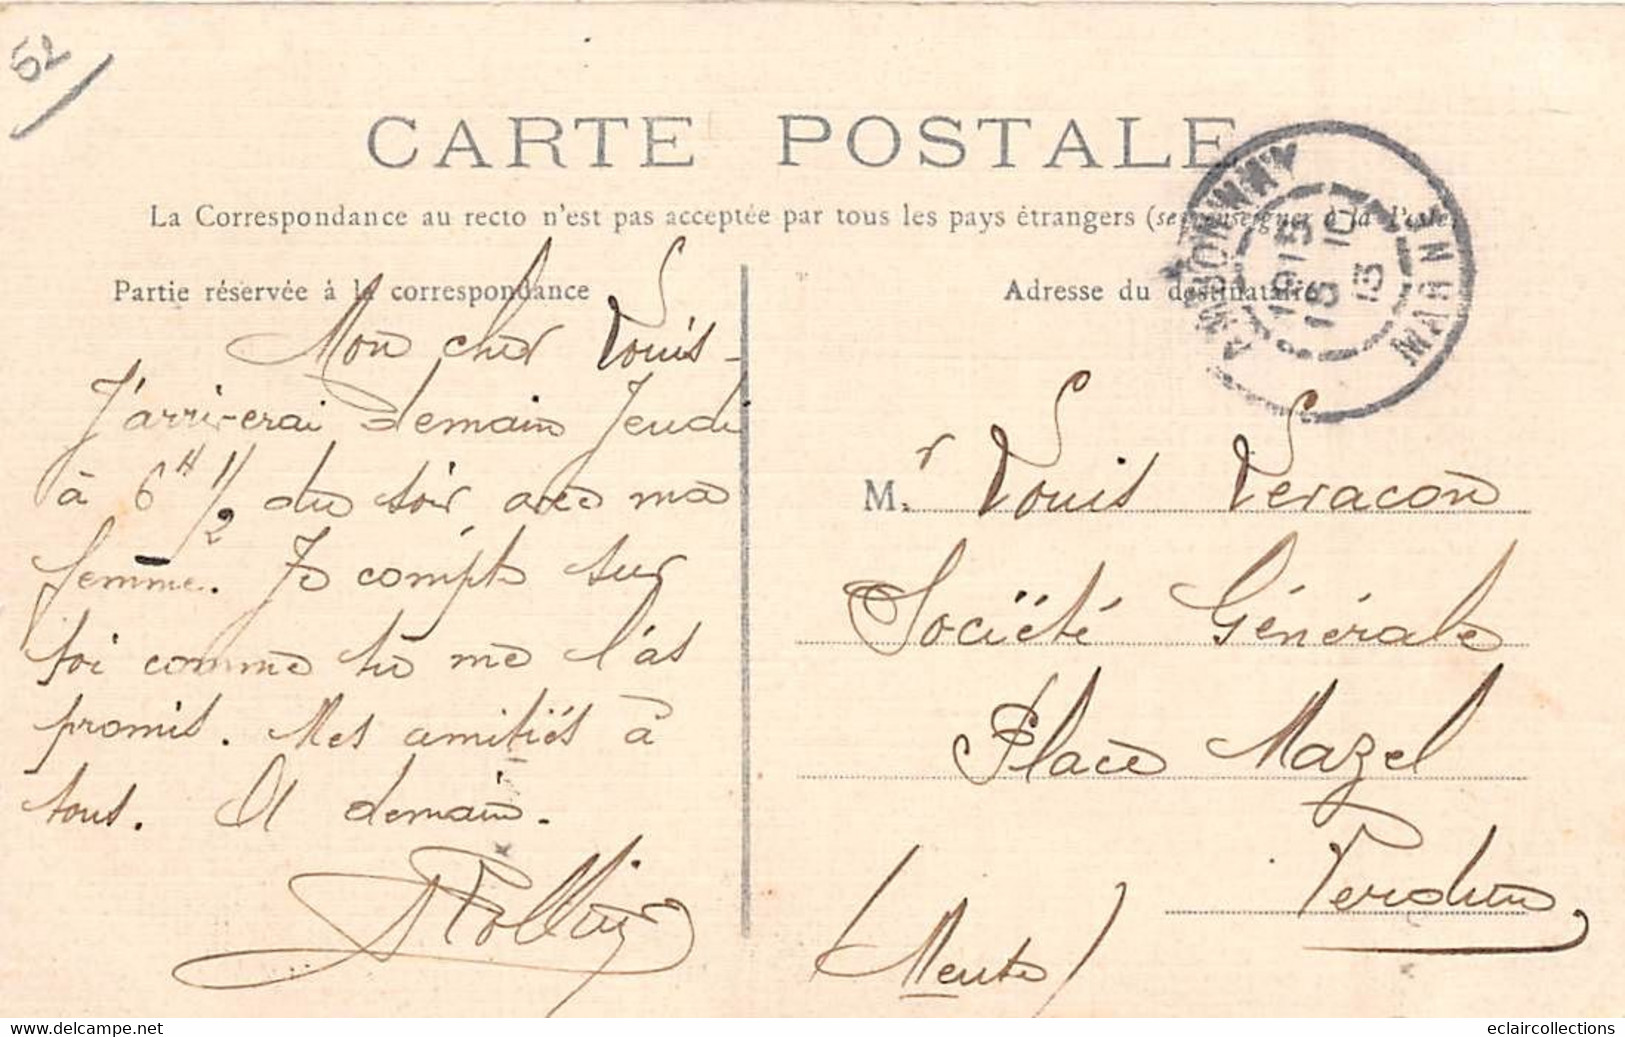 52
CARTE POSTALE
La Correspondance au recto n'est pas acceptée par tous les pays étrangers (se renseigner à la Poste)
Partie réservée à la correspondance
Adresse du destinataire
AMBONNAY
MARNE
1915
18 10
13
Mon cher Louis -
J'arriverai Demain Jeudi
à 6 H 1/2 du soir avec ma
femme. Je compte sur
toi comme tu me l'as
promis. Mes amitiés à
tous. A demain.
Mr. Louis Veracon
Société Générale
Place Mazel
Verdun
(Meuse)
www.delcampe.net
eclaircollections